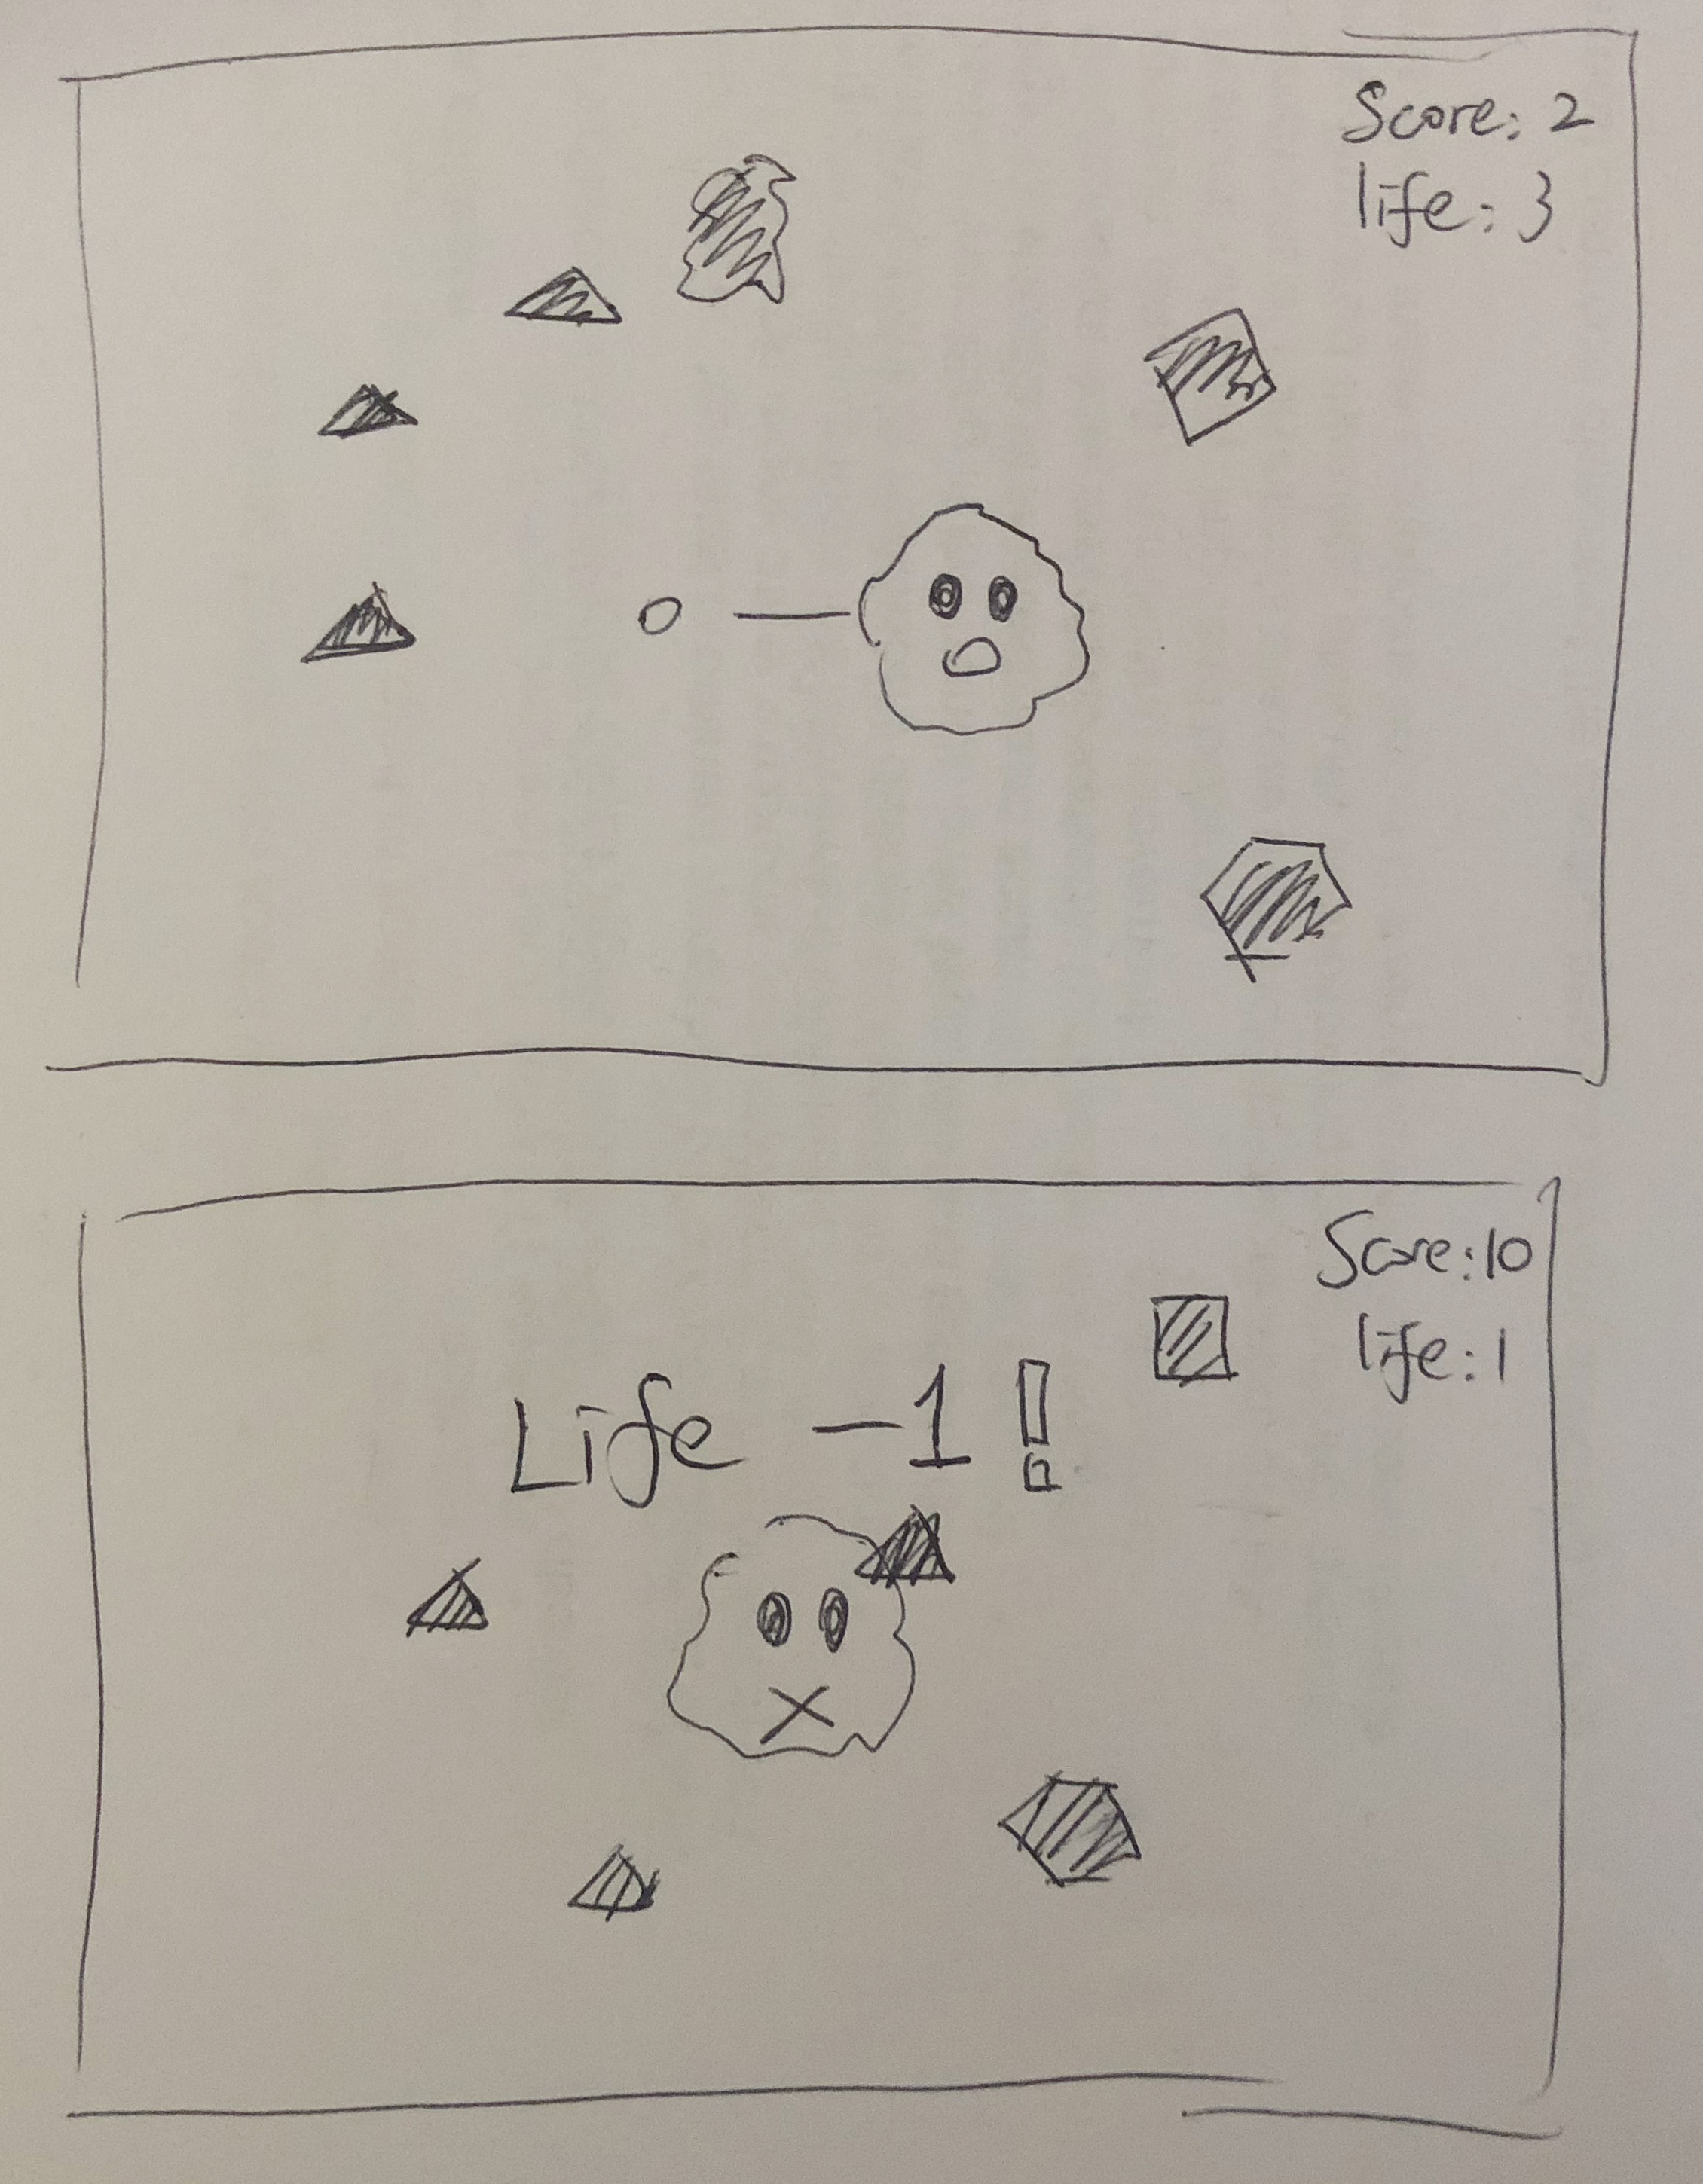 Score: 2
life: 3
Score: 10
life: 1
Life -1!